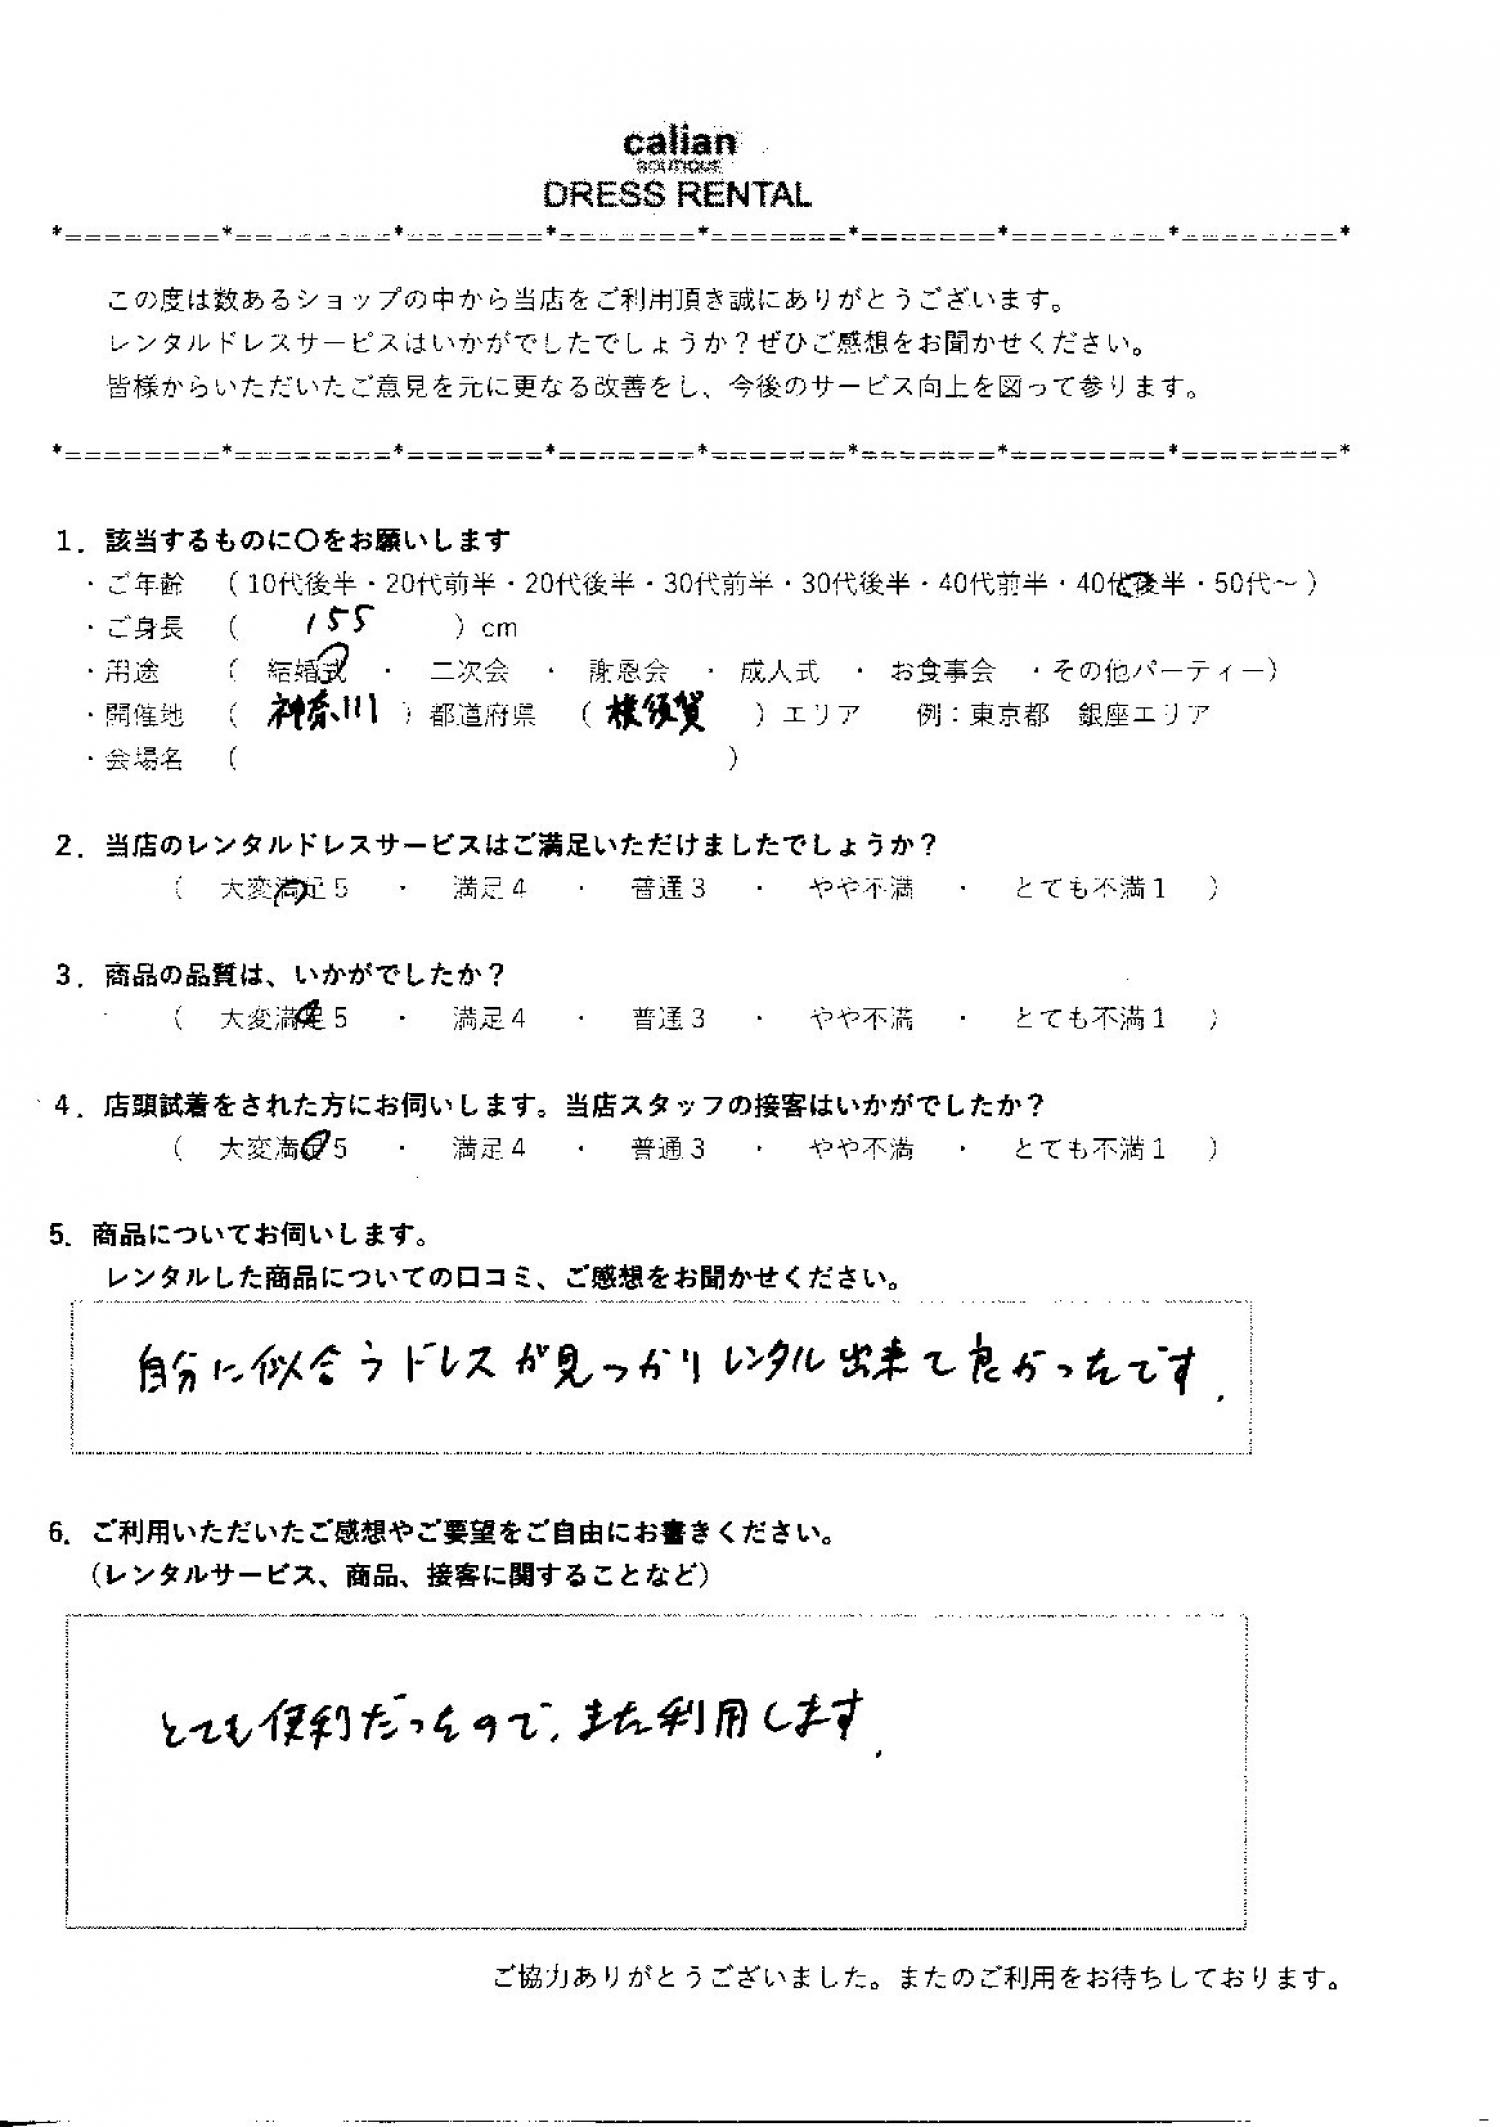 calian
BOUTIQUE
DRESS RENTAL
*========*========*=======*=======*=======*=======*========*========*
この度は数あるショップの中から当店をご利用頂き誠にありがとうございます。
レンタルドレスサービスはいかがでしたでしょうか？ぜひご感想をお聞かせください。
皆様からいただいたご意見を元に更なる改善をし、今後のサービス向上を図って参ります。
*========*========*=======*=======*=======*=======*========*========*
1．該当するものに〇をお願いします
・ご年齢　（10代後半・20代前半・20代後半・30代前半・30代後半・40代前半・40代後半・50代～）
・ご身長　（　155　）cm
・用途　（　結婚式　・　二次会　・　謝恩会　・　成人式　・　お食事会　・その他パーティー）
・開催地　（　神奈川　）都道府県　（　横須賀　）エリア　例：東京都　銀座エリア
・会場名　（　　　）
2．当店のレンタルドレスサービスはご満足いただけましたでしょうか？
（　大変満足5　・　満足4　・　普通3　・　やや不満　・　とても不満1　）
3．商品の品質は、いかがでしたか？
（　大変満足5　・　満足4　・　普通3　・　やや不満　・　とても不満1　）
4．店頭試着をされた方にお伺いします。当店スタッフの接客はいかがでしたか？
（　大変満足5　・　満足4　・　普通3　・　やや不満　・　とても不満1　）
5．商品についてお伺いします。
レンタルした商品についての口コミ、ご感想をお聞かせください。
自分に似合うドレスが見つかりレンタル出来て良かったです.
6．ご利用いただいたご感想やご要望をご自由にお書きください。
（レンタルサービス、商品、接客に関することなど）
とても便利だったので、また利用します.
ご協力ありがとうございました。またのご利用をお待ちしております。